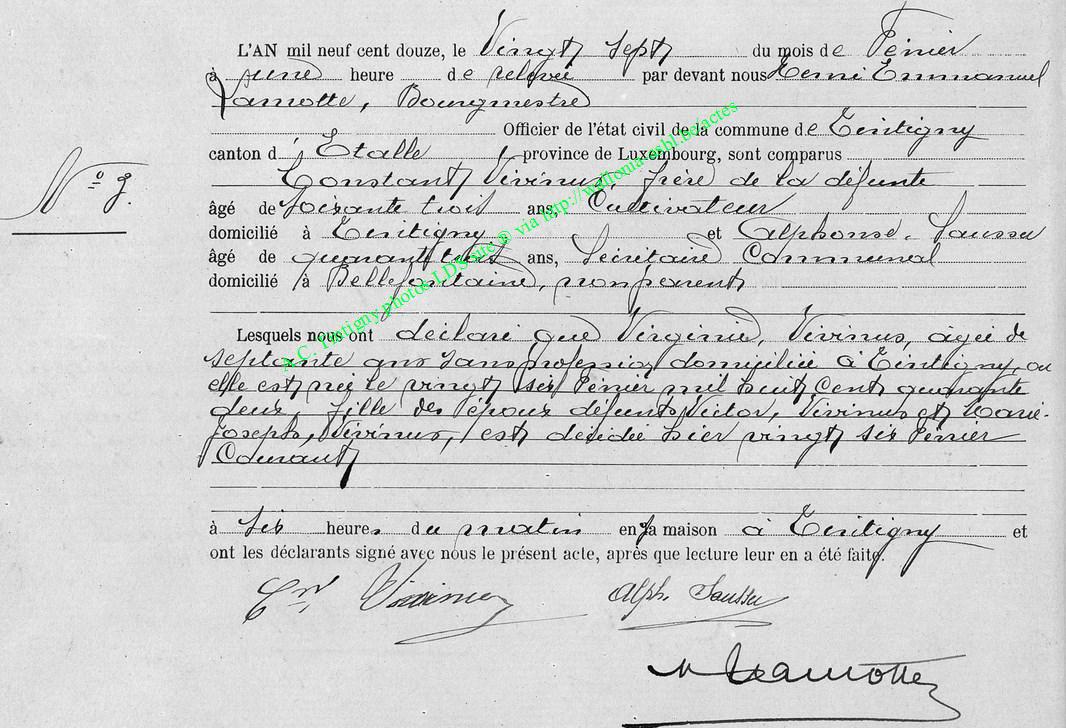 L'AN mil neuf cent douze, le Vingt sept du mois de Février
à une heure de relevée par devant nous Remi Emmanuel
Lamotte, Bourgmestre
Officier de l'état civil de la commune de Tintigny
canton d' Etalle, province de Luxembourg, sont comparus
N° 9.
Constant Vivinus, frère de la défunte
âgé de soixante trois ans, Cultivateur
domicilié à Tintigny et Alphonse
âgé de quarante trois ans, Secrétaire Communal
domicilié à Bellefontaine, non parent
Lesquels nous ont déclaré que Virginie, Vivinus, âgée de
septante ans sans profession domiciliée à Tintigny, où
elle est née le vingt six Février mil huit cent quarante
deux, fille des époux défunts Victor, Vivinus et Marie-
Joseph, Vivinus, est décédée hier vingt six Février
Courant
à six heures du matin en sa maison à Tintigny et
ont les déclarants signé avec nous le présent acte, après que lecture leur en a été faite.
Cnt Vivinus Alph.
Lamotte
A.C. Tintigny photos LDS site ® via http://wallonia.asbl.be/actes